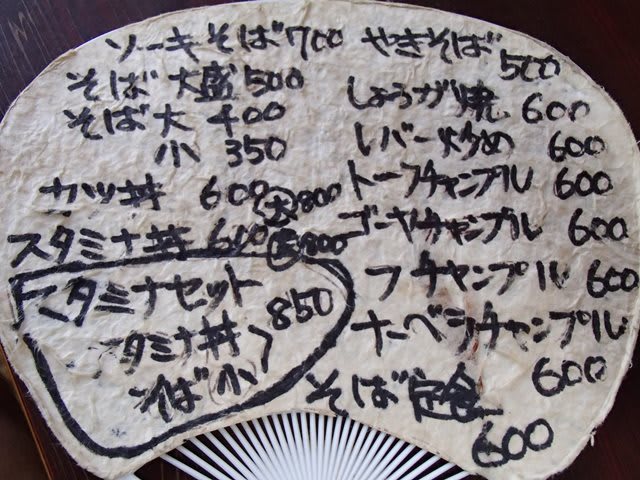 ソーキそば 700
そば 大盛 500
そば 大 400
小 350
カツ丼 600 大 800
スタミナ丼 600 大 800
スタミナセット
スタミナ丼
そば 小
850
やきそば 500
しょうが焼 600
レバー炒め 600
トーフチャンプル 600
ゴーヤチャンプル 600
フチャンプル 600
ナーベラチャンプル
600
そば定食
600